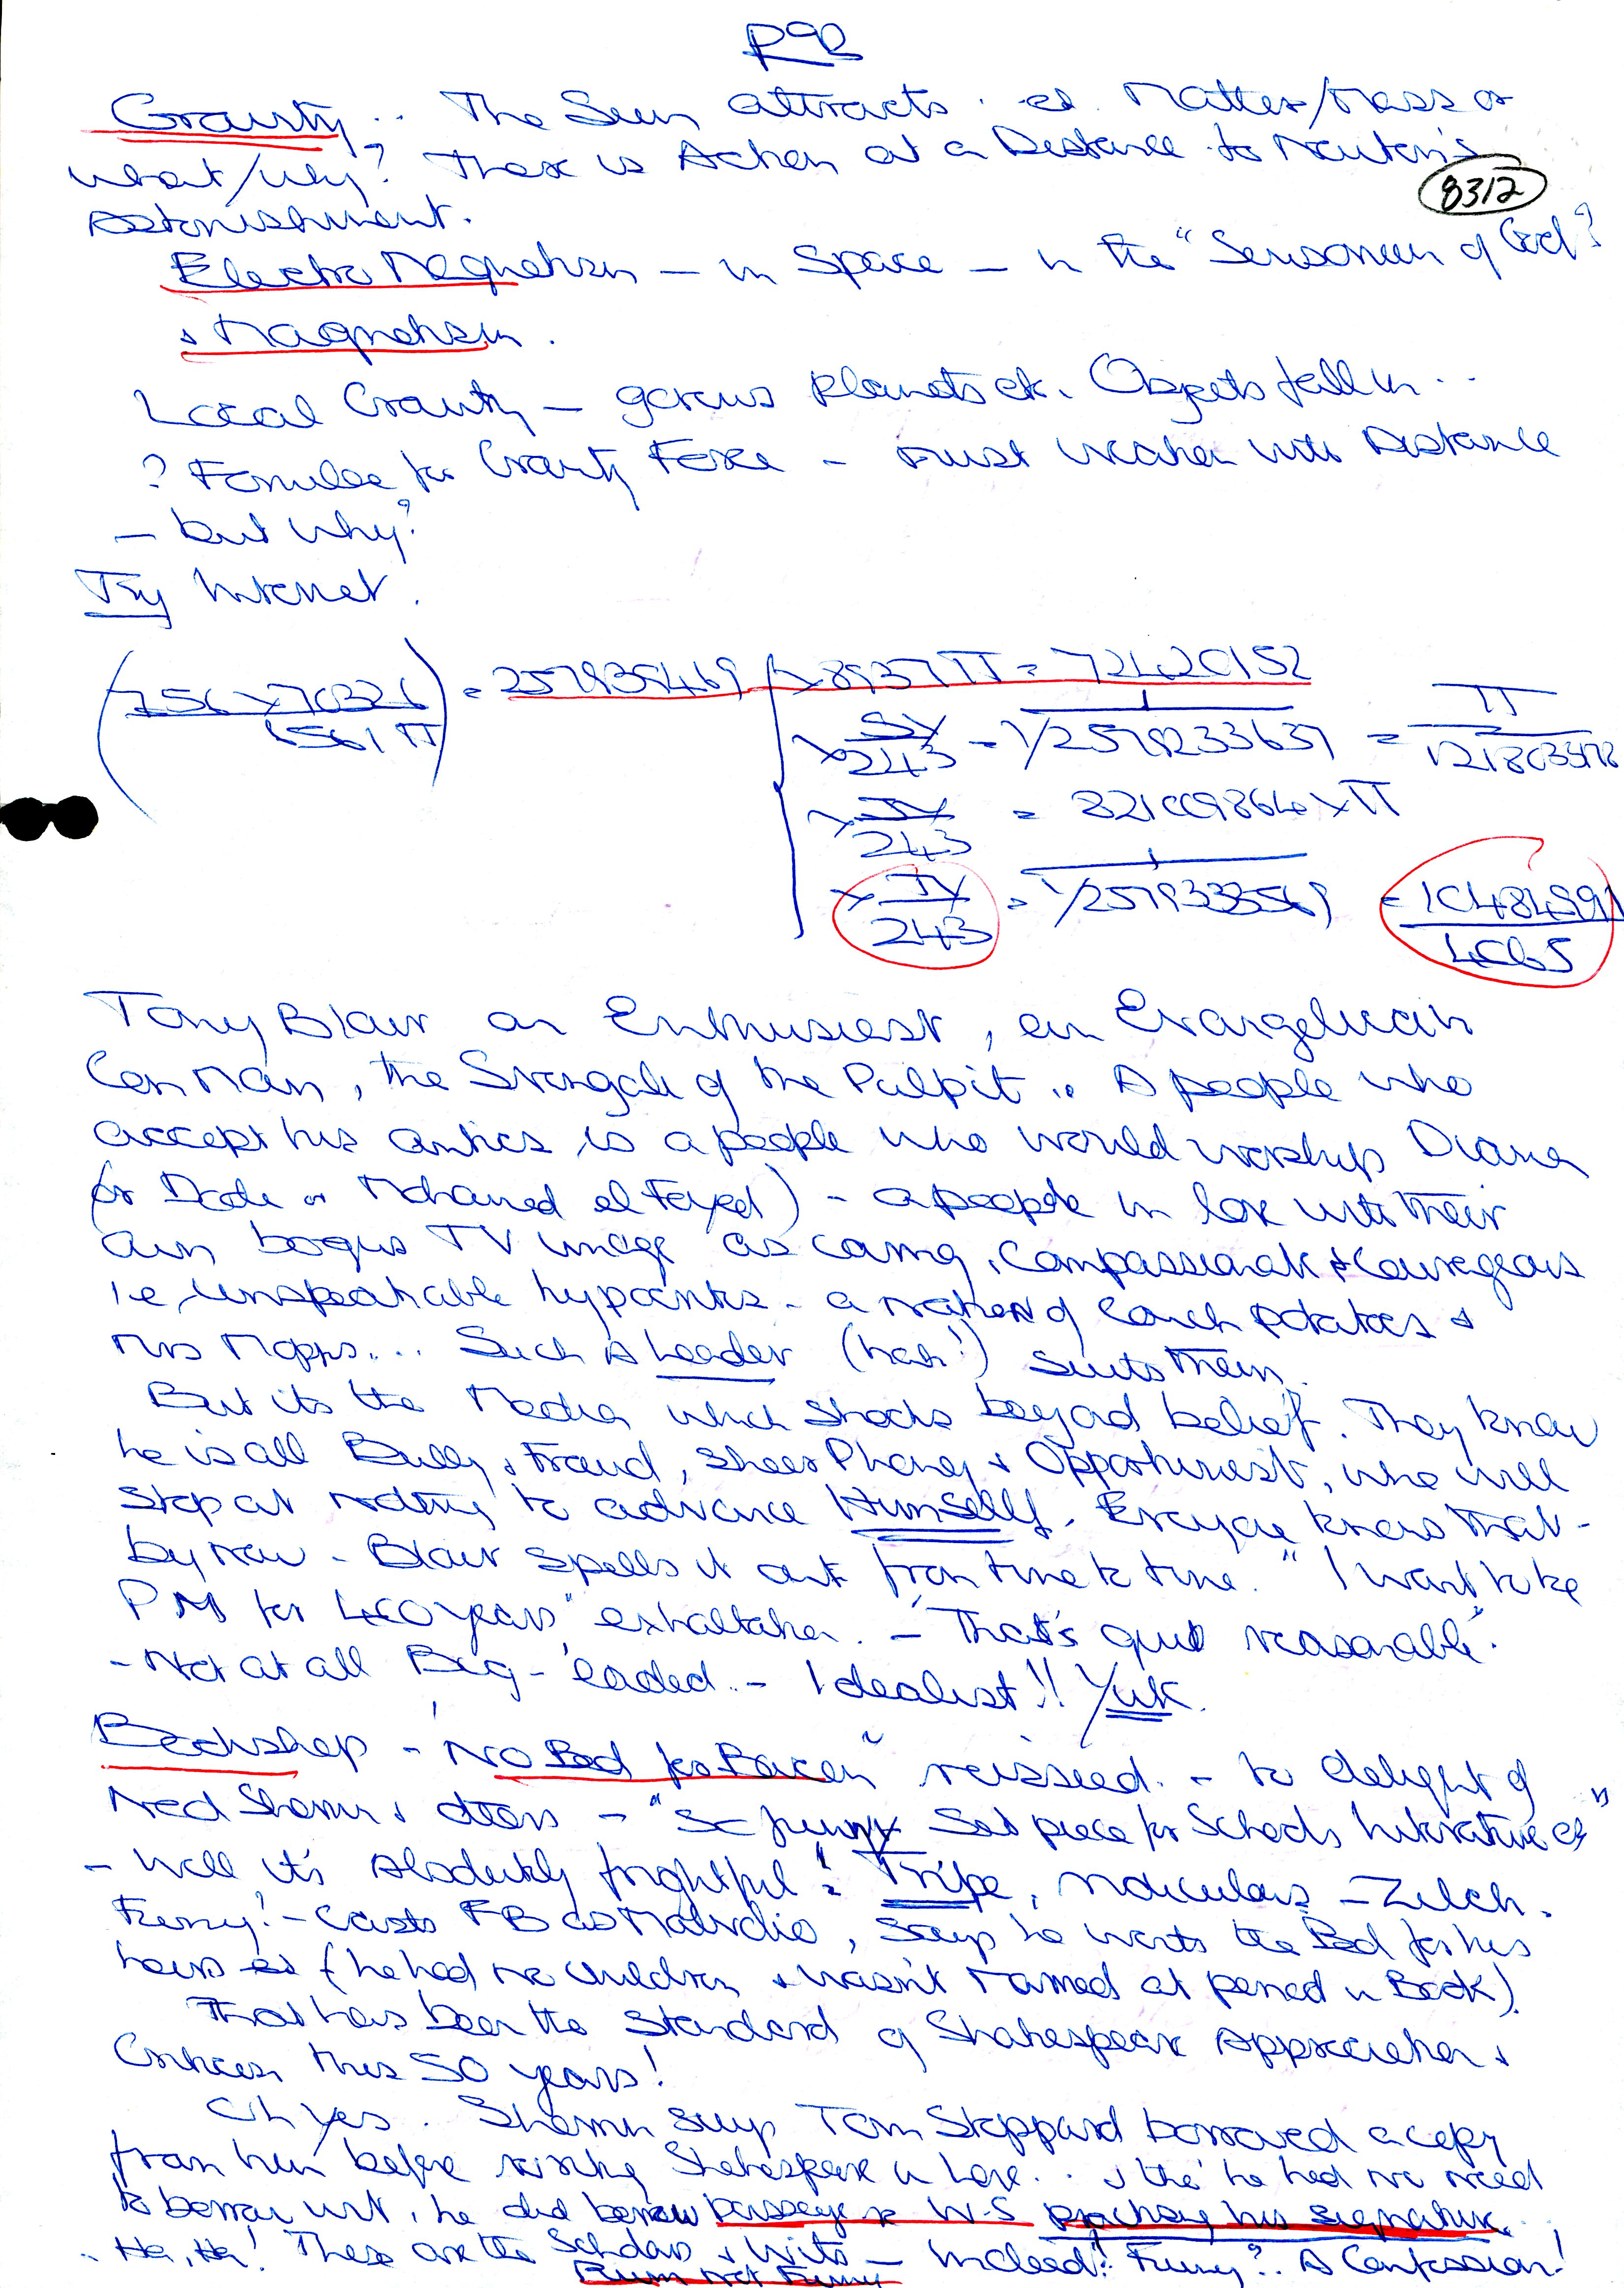 P92
Gravity .. The Sun attracts . eg. Matter/Mass or
what/why? There is Action at a Distance to Newton's
8312
Astonishment.
Electro Magnetism – in Space – in the "Sensorium of God?
& Magnetism.
Local Gravity – planets etc. Objects fall in ..
? Formula for Gravity Force – must weaken with Distance
– but why?
Try Internet.
= 257939469 × 8937 π = 72420152
6561 π
243
= 821009864 × π
243
243
4065
Tony Blair an Enthusiast, an Evangelican
Con Man, the Svengali of the Pulpit .. A people who
accept his antics is a people who would worship Diana
(or Dodi or Mohamed el Fayed) – a people in love with their
own bogus TV image as caring, Compassionate & Courageous
i.e. unspeakable hypocrites – a nation of Couch potatoes &
Mrs Mopps... Such a Leader (hah!) suits them.
But its the Media which shocks beyond belief. They know
he is all Bully, Fraud, sheer Phoney & Opportunist, who will
stop at nothing to advance Himself. Everyone knows that -
by now - Blair spells it out from time to time. "I want to be
PM for 400 years" exhaltation. – "That's quite reasonable".
- Not at all Big-'eaded. - Idealist!! Yuk.
Bookshop - "No Bed for Bacon" reissued. - to delight of
Ned Sherrin & others - "So funny Set piece for Schools literature etc"
- Well it's Absolutely frightful = Tripe, ridiculous – Zilch.
Funny? - Casts FB as Malvolio, says he wants the Bed for his
heirs (he had no children & wasn't married at period in Book).
That has been the Standard of Shakespeare Appreciation &
Criticism this 50 years!
Oh yes. Sherrin says Tom Stoppard borrowed a copy
from him before writing Shakespeare in Love... & tho' he had no need
to borrow wit, he did borrow passage re W.S practising his signature.
Ha, Ha! These are the Scholars & Wits – Indeed? Funny?. A Confession!
Rum not Funny